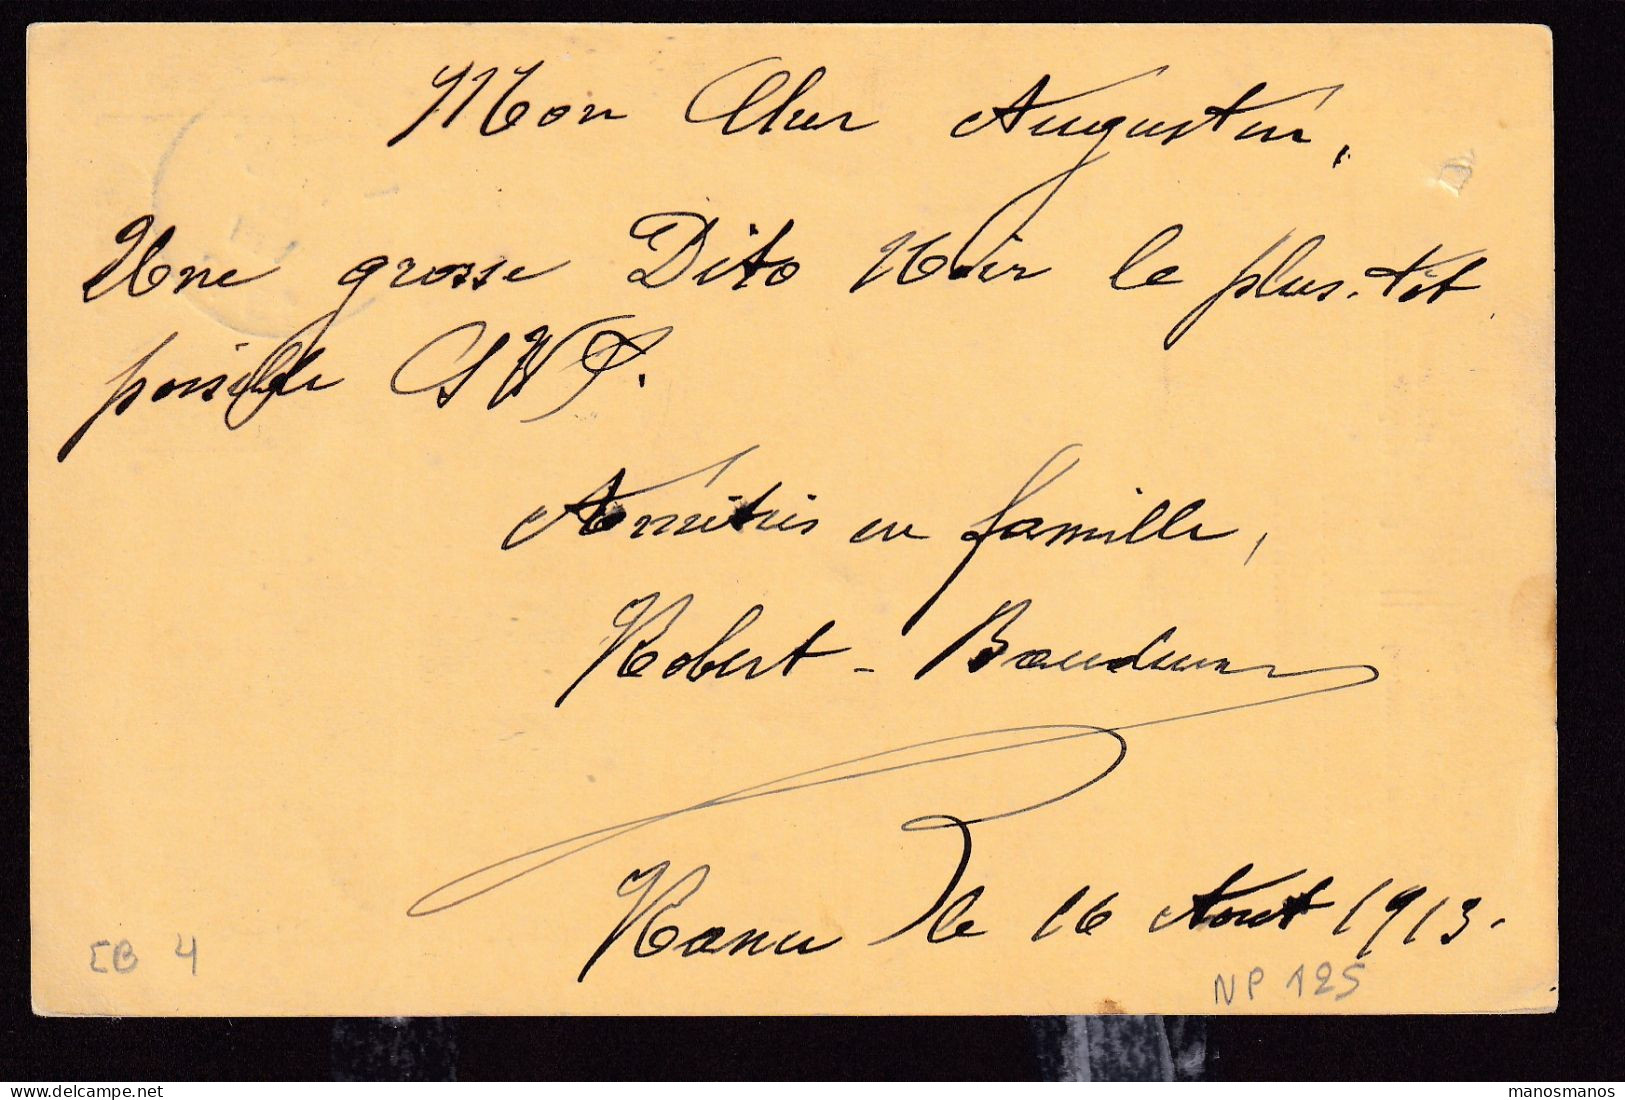 Mon Cher Augustin,
Une grosse Dito Noir le plus tôt
possible S V P.
Amitiés en famille,
Robert-
le 16 Août 1913.
EB 4
NP 125
manosmanos